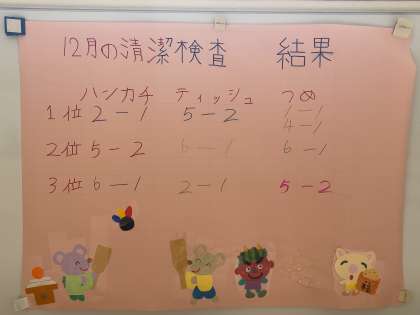 12月の清潔検査 結果
ハンカチ ティッシュ つめ
1位 2－1 5－2 1－1
4－1
2位 5－2 6－1 6－1
3位 6－1 2－1 5－2